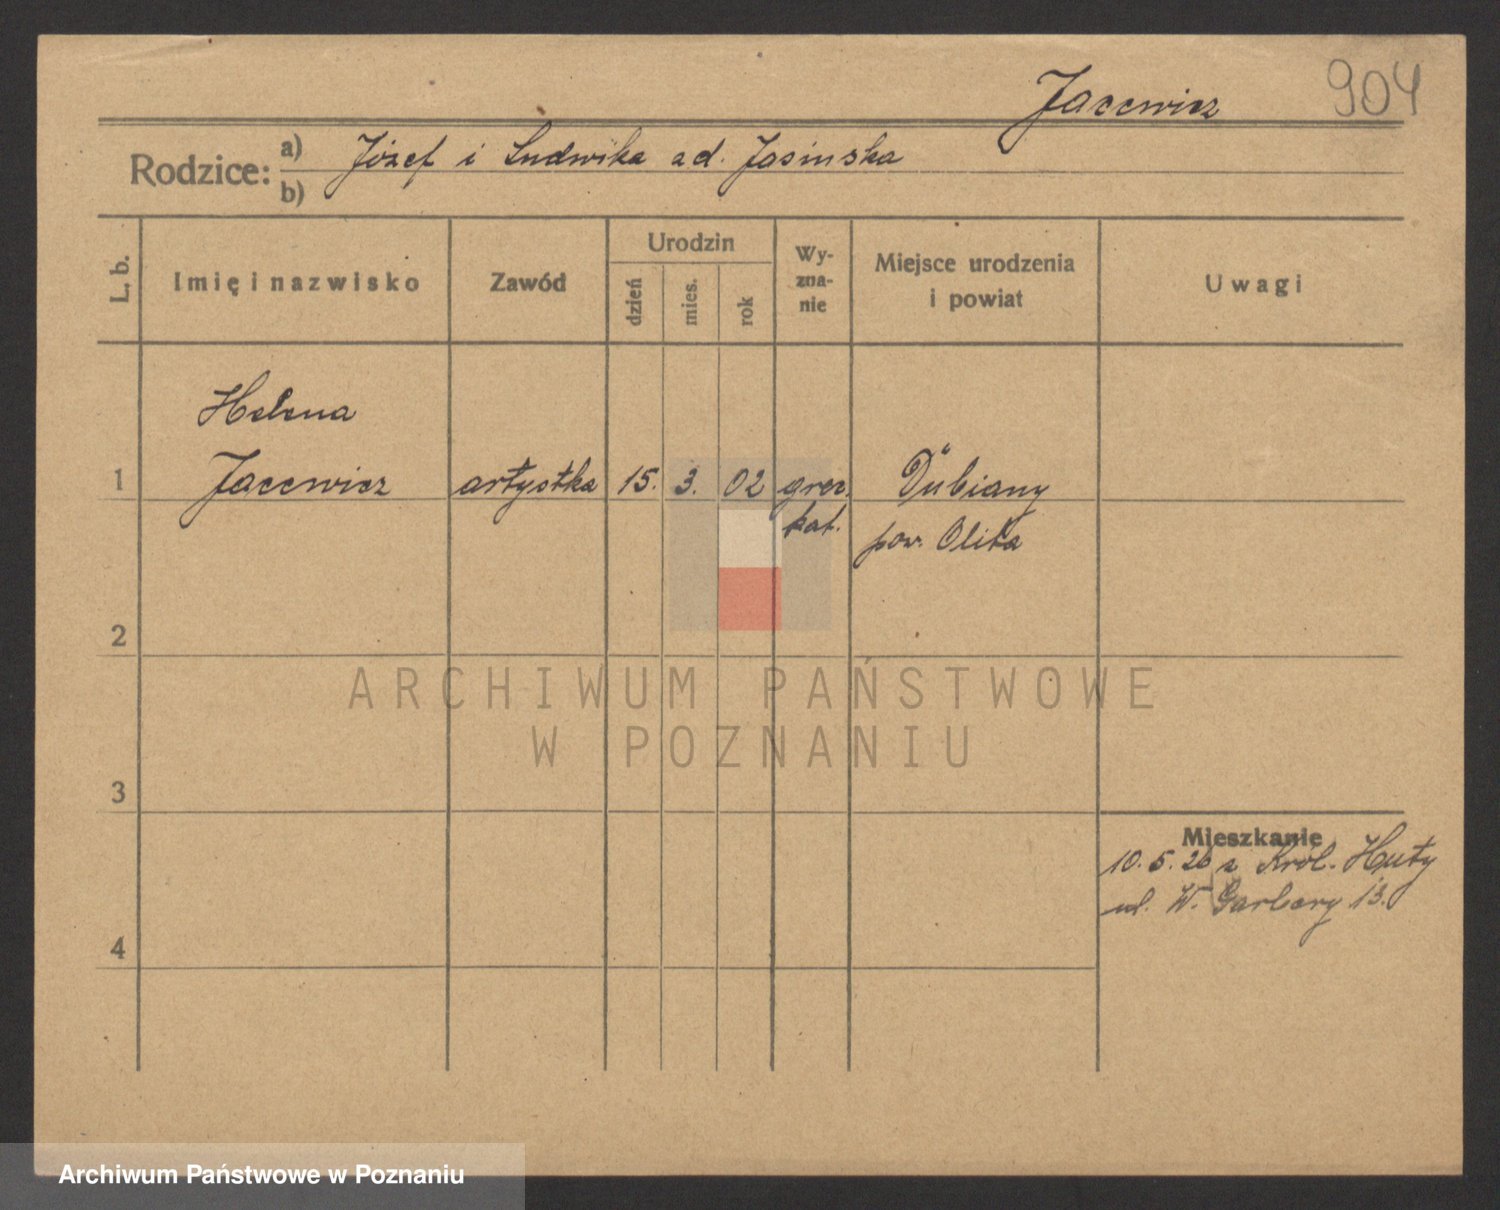 904
Jacewicz
Rodzice: a) Józef i Ludwika zd. Jasinska
b)
L. b.
Imię i nazwisko
Zawód
Urodzin
dzień
mies.
rok
Wy-
zna-
nie
Miejsce urodzenia
i powiat
Uwagi
Helena
1 Jacewicz artystka 15. 3. 02 grec. Dubiany
kat. pow. Olita
2
3
4
Mieszkanie
10.5.26 z Król. Huty
ul. W. Garbary 13.
ARCHIWUM PAŃSTWOWE
W POZNANIU
Archiwum Państwowe w Poznaniu